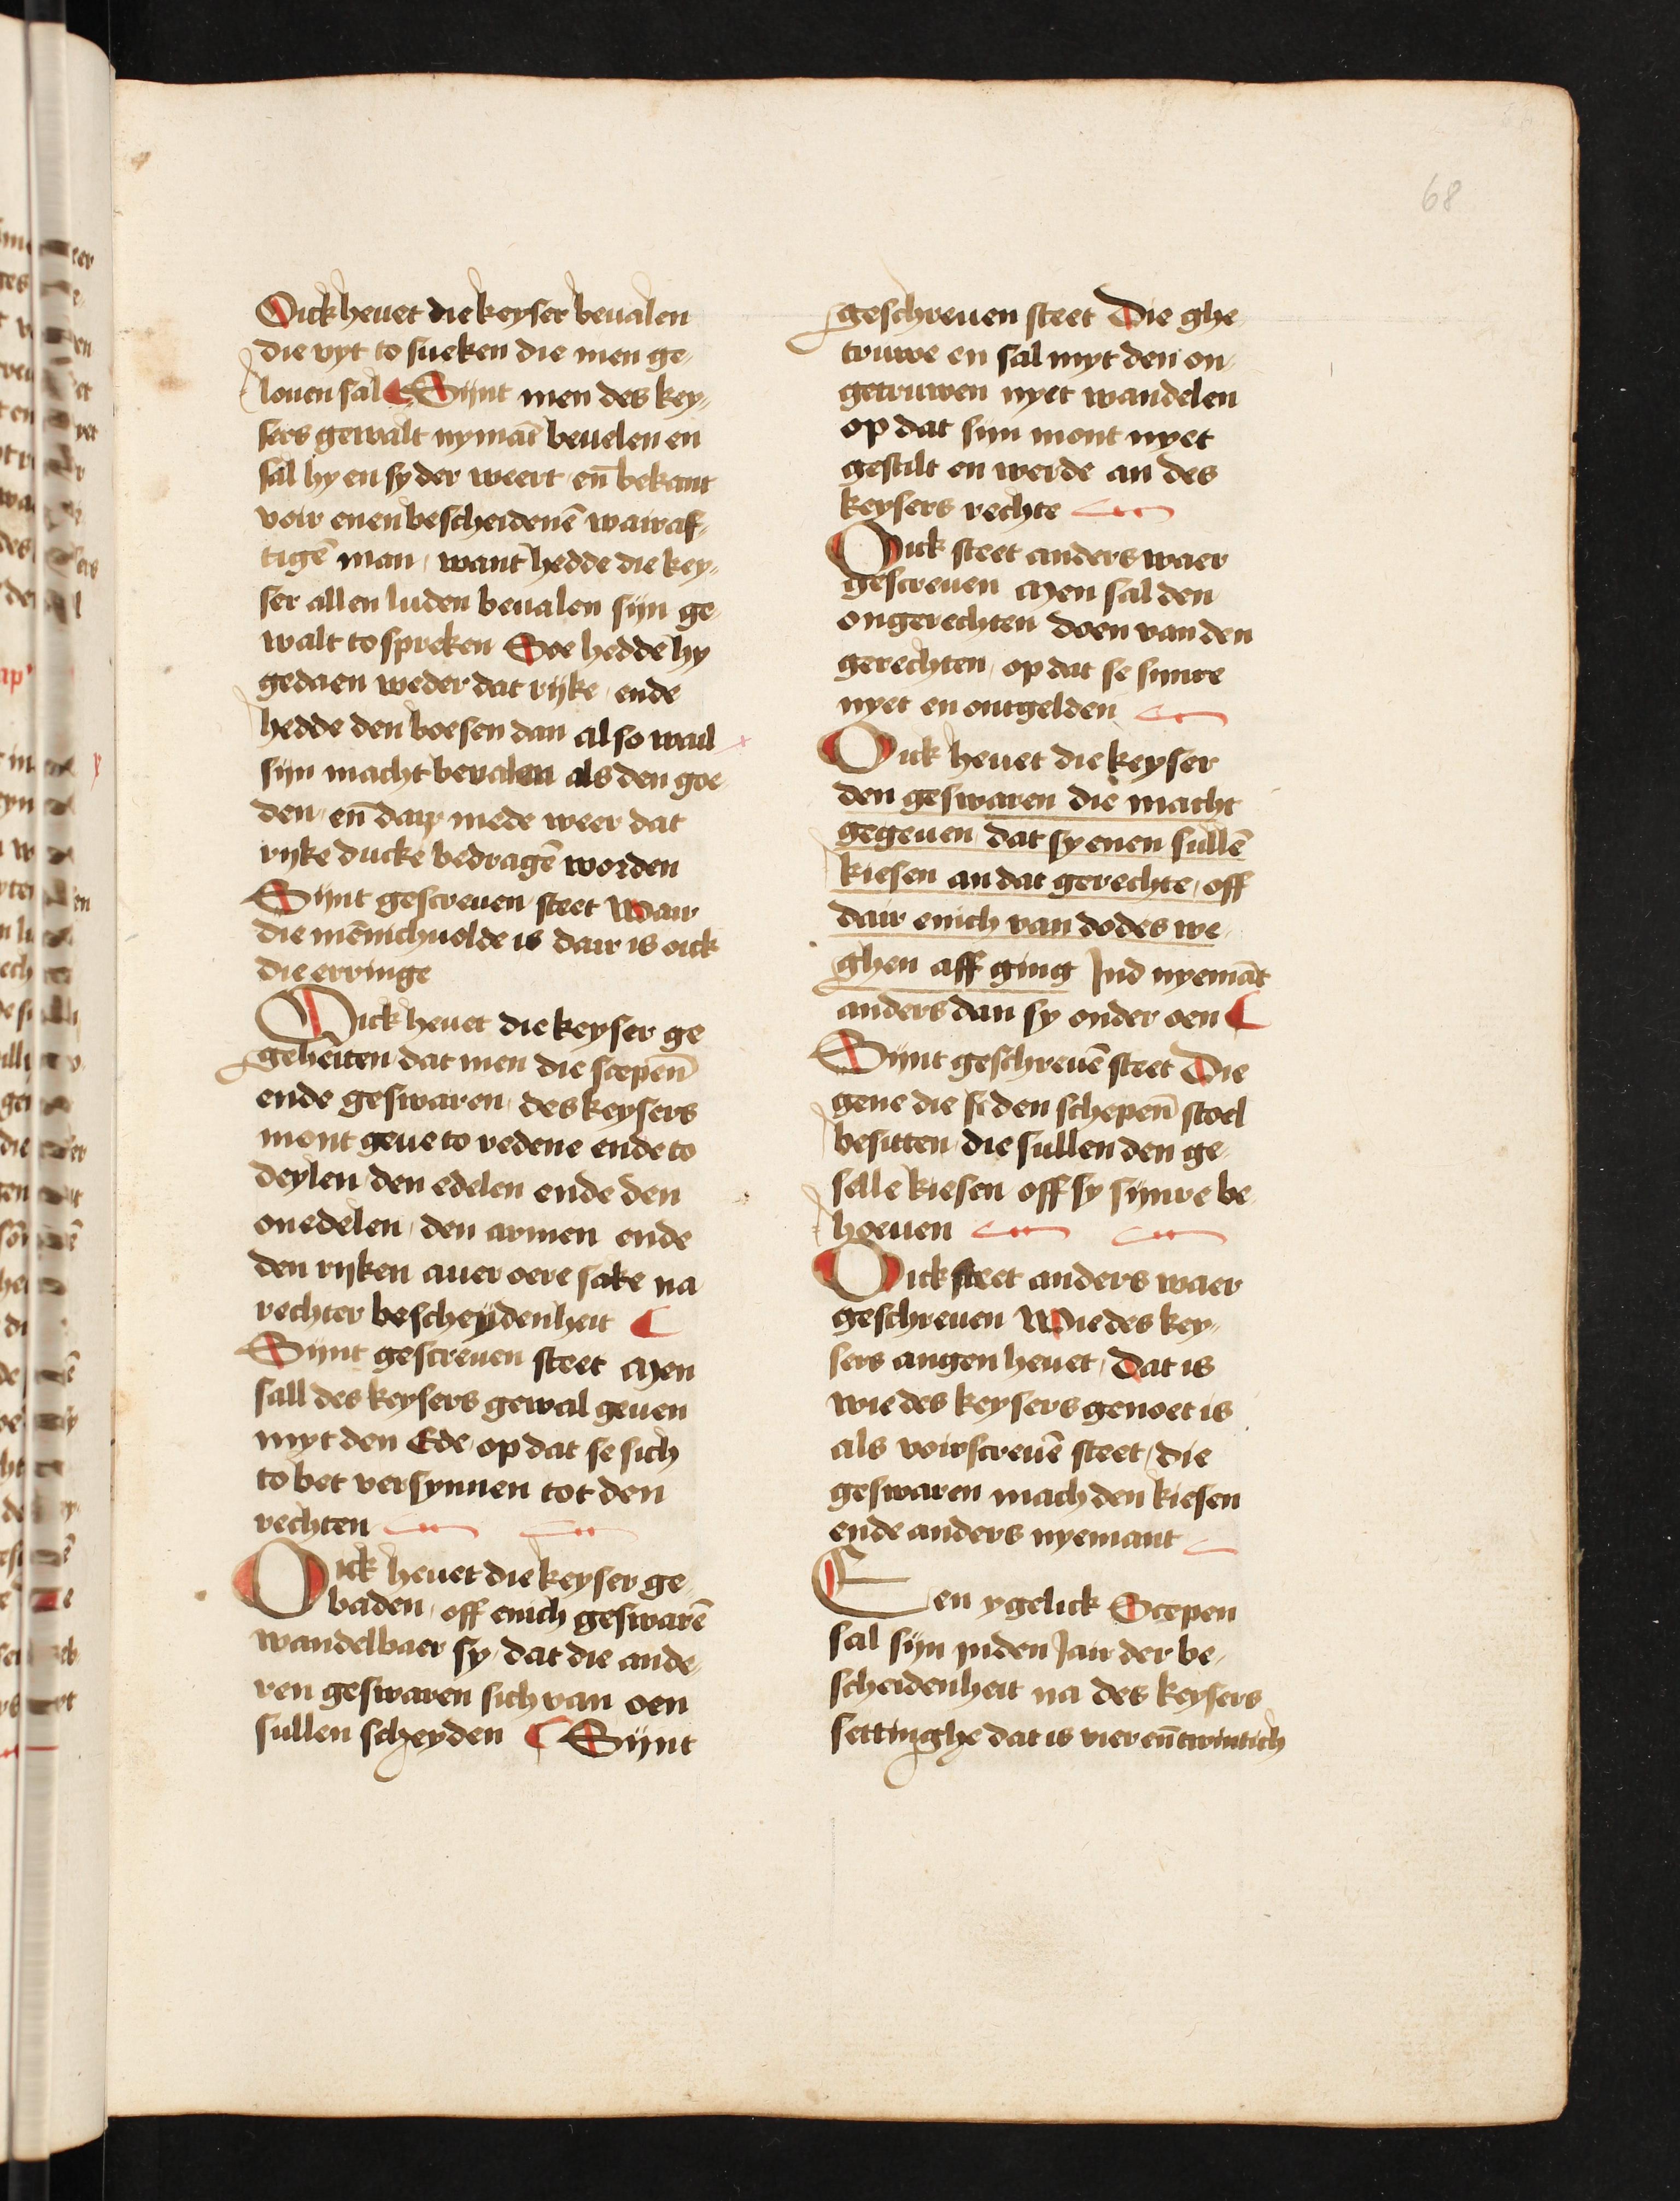 68
Oick heuet die keyser beualen
die vyt to sueken die men ge-
louen sal ¶ Sijnt men des key-
sers gewalt nymāt beuelen en
sal hy en sy der weert en̄ bekant
voir enen bescheidenē wairaf-
tigē man, want hedde die key-
ser allen luden beualen sijn ge-
walt to spreken Soe hedde hy
gedaen weder dat rijke, ende
hedde den boesen dan also wail
sijn macht beualen als den goe-
den, en̄ dair mede weer dat
rijke ducke bedragē worden
Sijnt gescreuen steet Wair
die mēnichuolde is dair is oick
die erringe
Oick heuet die keyser ge
geheiten, dat men die scepen̄
ende geswaren, des keysers
mont geue to redene ende to
deylen, den edelen ende den
onedelen, den armen ende
den rijken auer oere sake na
rechter bescheydenheit ¶
Sijnt gescreuen steet Men
sall des keysers gewal geuen
myt den Ede, op dat se sich
to bet versynnen tot den
rechten
Oick heuet die keyser ge-
baden, off enich geswarē
wandelbaer sy, dat die ande-
ren geswaren sich van oen
sullen scheyden ¶ Sijnt
geschreuen steet Die ghe-
truwe en sal myt den on-
getruwen nyet wandelen
op dat sijn mont nyet
gestilt en werde an des
keysers rechte
Oick steet anders waer
gescreuen Men sal den
ongerechten doen van den
gerechten, op dat se sijnre
nyet en ontgelden
Oick heuet die keyser
den geswaren die macht
gegeuen, dat sy enen sullē
kiesen an dat gerechte, off
dair enich van dodes we-
ghen aff ging Ind nyemāt
anders dan sy onder oen ¶
Sijnt geschreuē steet Die
gene die in den schepen̄ stoel
besitten, die sullen den ge-
selle kiesen off sy sijnre be-
hoeuen
Oick steet anders waer
geschreuen Wie des key-
sers angen heuet, Dat is
wie des keysers genoet is
als voirscreuē steet, die
geswaren mach den kiesen
ende anders nyemant
Een ygelick Scepen
sal sijn inden Jair der be-
scheidenheit na des keysers
settinghe dat is vier en̄ twintich